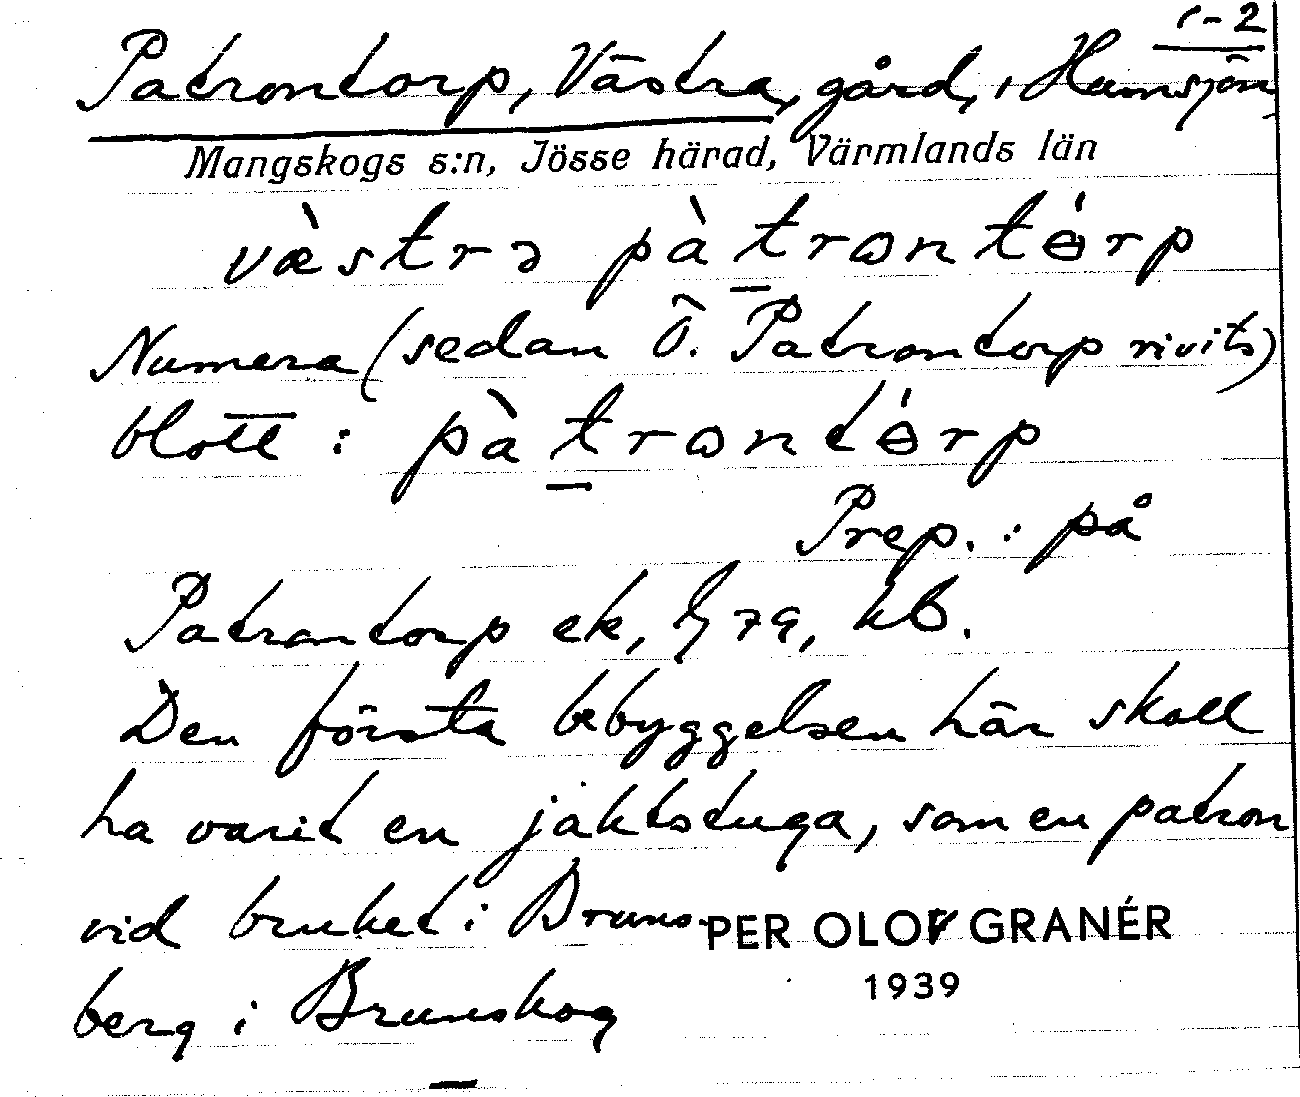 1-2
Patrontorp, Västra, gård, i Humsjön
Mangskogs s:n, Jösse härad, Värmlands län
væ̀strə pàtrωntɵ́rp
Numera (sedan Ö. Patrontorp rivits)
blott : pàtrωntɵ́rp
Prep. : på
Patrontorp ek, 79, kb.
Den första bebyggelsen här skall
ha varit en jaktstuga, som en patron
vid bruket i Bruns-
PER OLOF GRANÉR
1939
berg i Brunskog